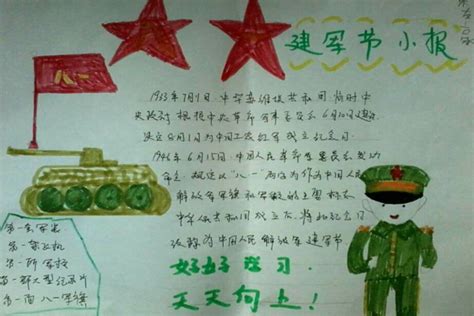 建军节小报
八一
1933年7月1日,中华苏维埃共和国临时中
央政府根据中央革命军事委员会6月30日建议
决定8月1日为中国工农红军成立纪念日
1946年6月15日,中国人民革命军事委员会
命令,规定以"八一"两字作为中国人民
解放军军旗和军徽的主要标志
中华人民共和国成立后,将此纪念日
改称为中国人民解放军建军节
第一
第一架飞机
第一所军校
第一部大型纪录片
第一面八一军旗
好好学习
天天向上!